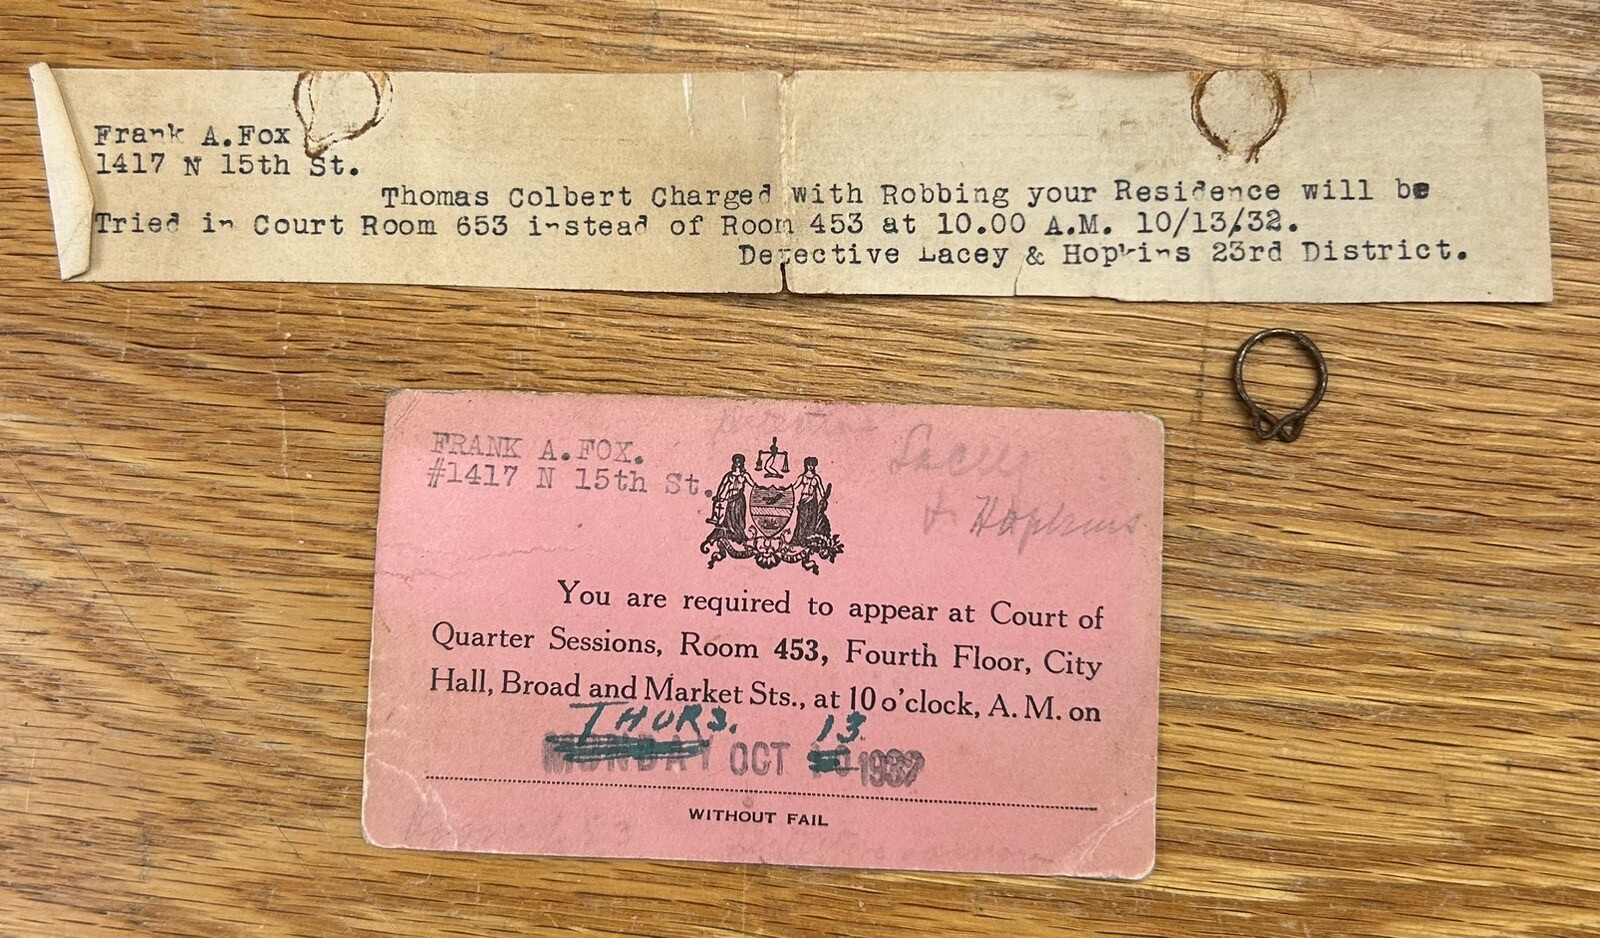 Frank A.Fox
1417 N 15th St.
Thomas Colbert Charged with Robbing your Residence will be
Tried in Court Room 653 instead of Room 453 at 10.00 A.M. 10/13/32.
Detective Lacey & Hopkins 23rd District.
FRANK A.FOX.
#1417 N 15th St.
Lacey
& Hopkins
You are required to appear at Court of
Quarter Sessions, Room 453, Fourth Floor, City
Hall, Broad and Market Sts., at 10 o'clock, A. M. on
THURS. 13
MONDAY OCT 10 1932
WITHOUT FAIL